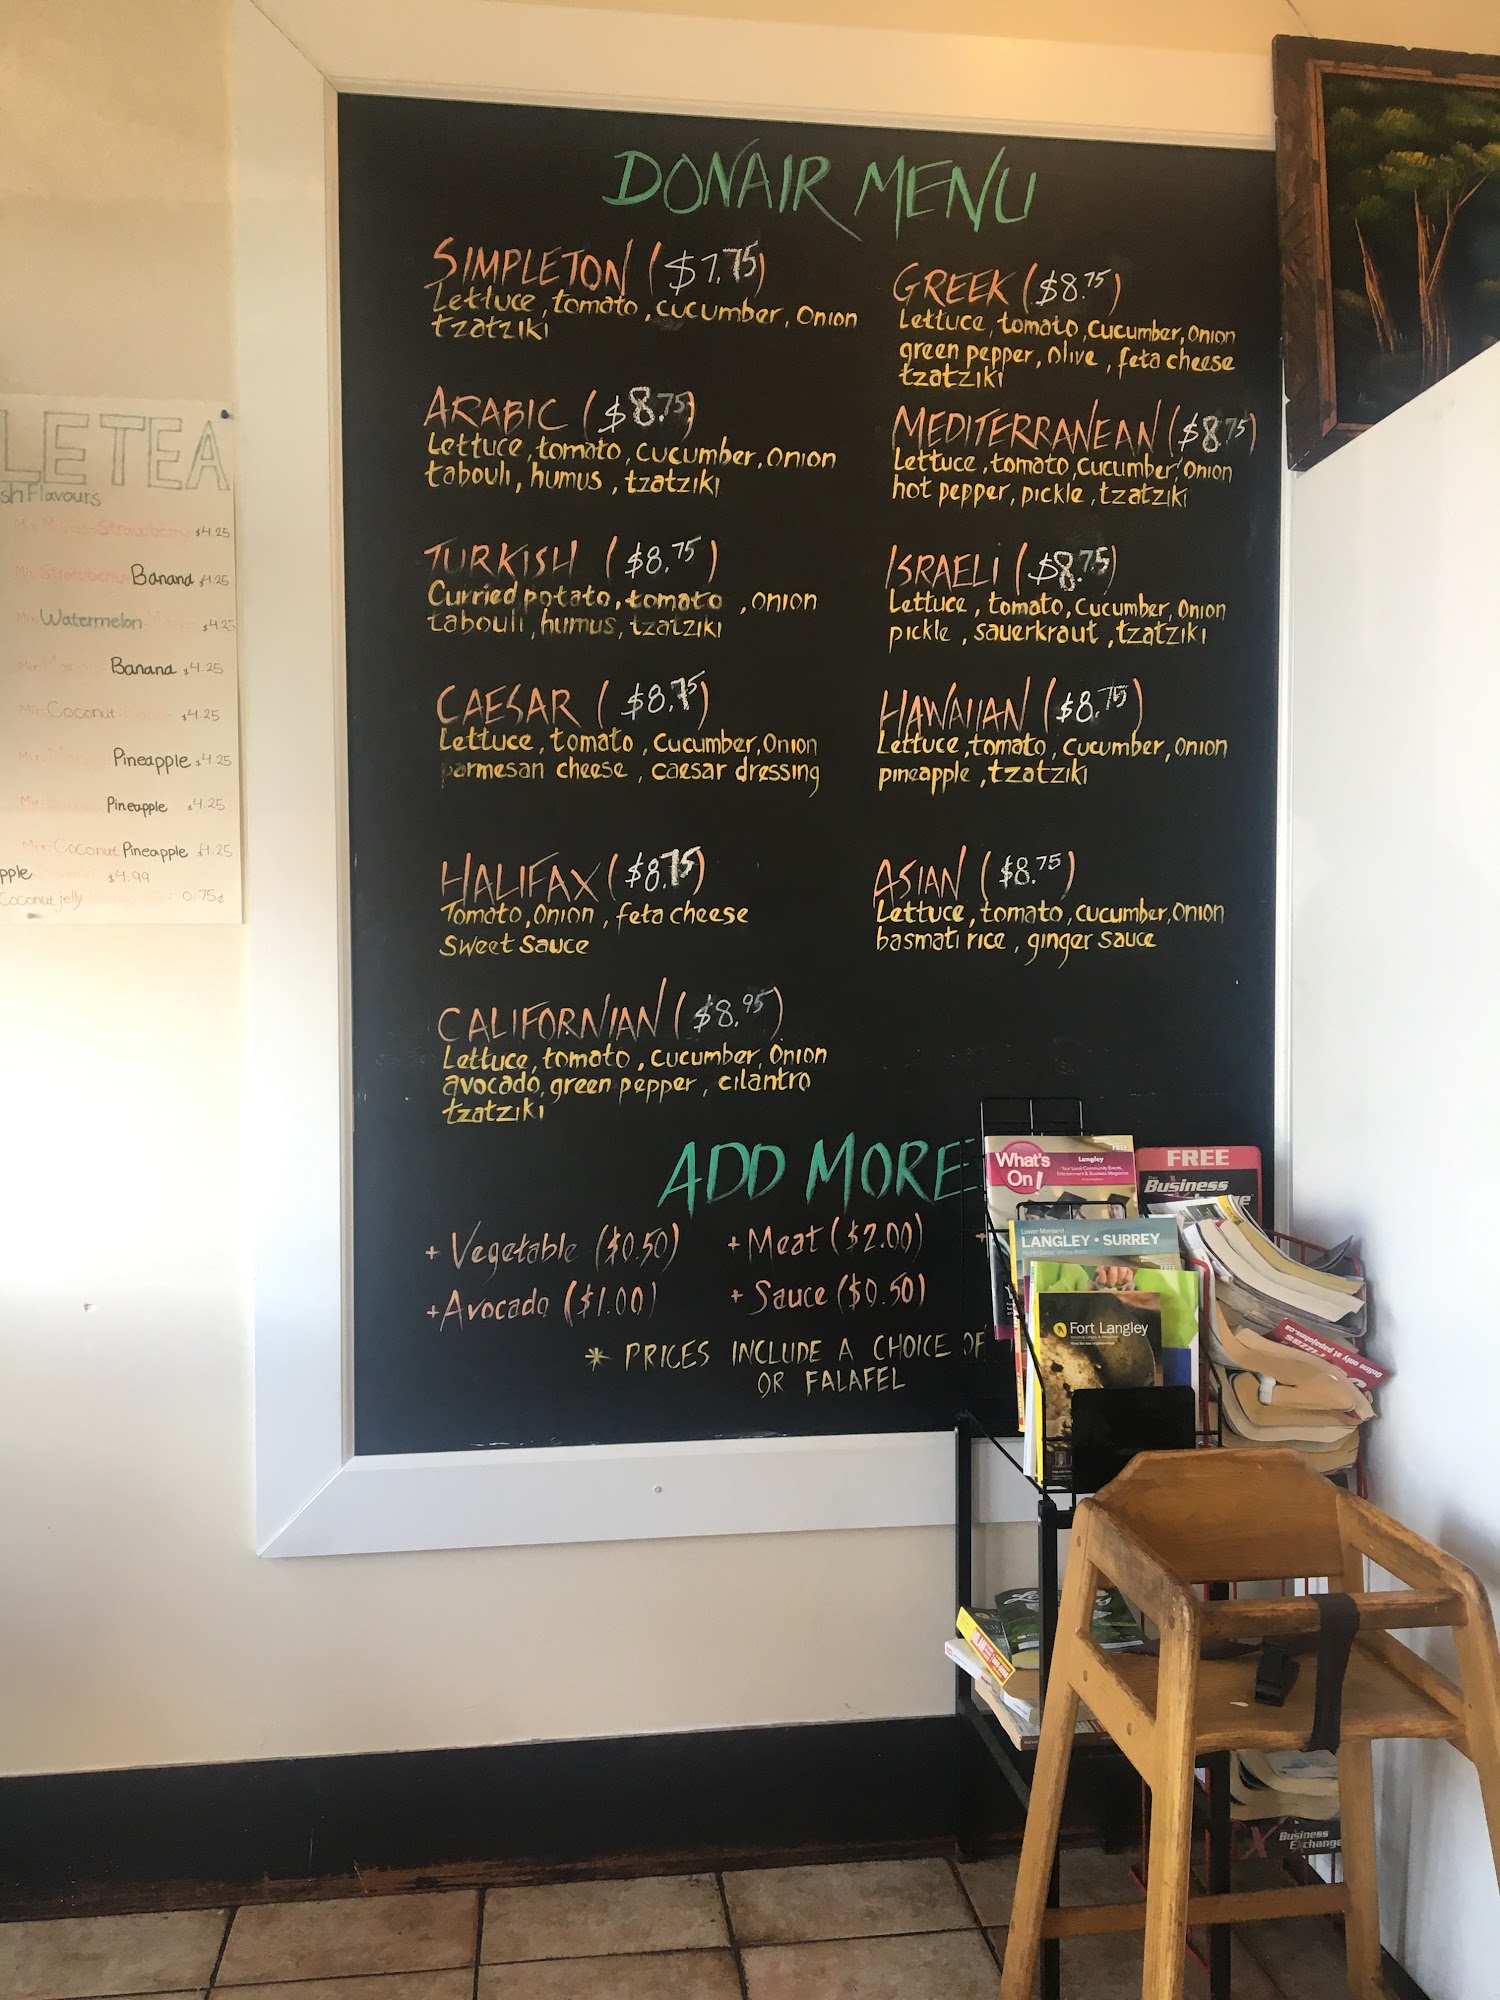 DONAIR MENU
SIMPLETON ($7.75)
Lettuce, tomato, cucumber, onion
tzatziki
ARABIC ($8.75)
Lettuce, tomato, cucumber, onion
tabouli, humus, tzatziki
TURKISH ($8.75)
Curried potato, tomato, onion
tabouli, humus, tzatziki
CAESAR ($8.75)
Lettuce, tomato, cucumber, onion
parmesan cheese, caesar dressing
HALIFAX ($8.75)
Tomato, onion, feta cheese
sweet sauce
CALIFORNIAN ($8.95)
Lettuce, tomato, cucumber, onion
avocado, green pepper, cilantro
tzatziki
GREEK ($8.75)
Lettuce, tomato, cucumber, onion
green pepper, olive, feta cheese
tzatziki
MEDITERRANEAN ($8.75)
Lettuce, tomato, cucumber, onion
hot pepper, pickle, tzatziki
ISRAELI ($8.75)
Lettuce, tomato, cucumber, onion
pickle, sauerkraut, tzatziki
HAWAIIAN ($8.75)
Lettuce, tomato, cucumber, onion
pineapple, tzatziki
ASIAN ($8.75)
Lettuce, tomato, cucumber, onion
basmati rice, ginger sauce
ADD MORE
+ Vegetable ($0.50) + Meat ($2.00) +
+ Avocado ($1.00) + Sauce ($0.50)
* PRICES INCLUDE A CHOICE OF
OR FALAFEL
LE TEA
sh Flavours
Mix Strawberry $4.25
Mix Strawberry Banana $4.25
Mix Watermelon $4.25
Mix Banana $4.25
Mix Coconut $4.25
Mix Pineapple $4.25
Mix Pineapple $4.25
Mix Coconut Pineapple $4.25
pple $4.99
Coconut jelly : 0.75¢
What's On!
Langley
FREE
Business
LANGLEY • SURREY
Fort Langley
Online only at papajohns.ca
Business
Exchange